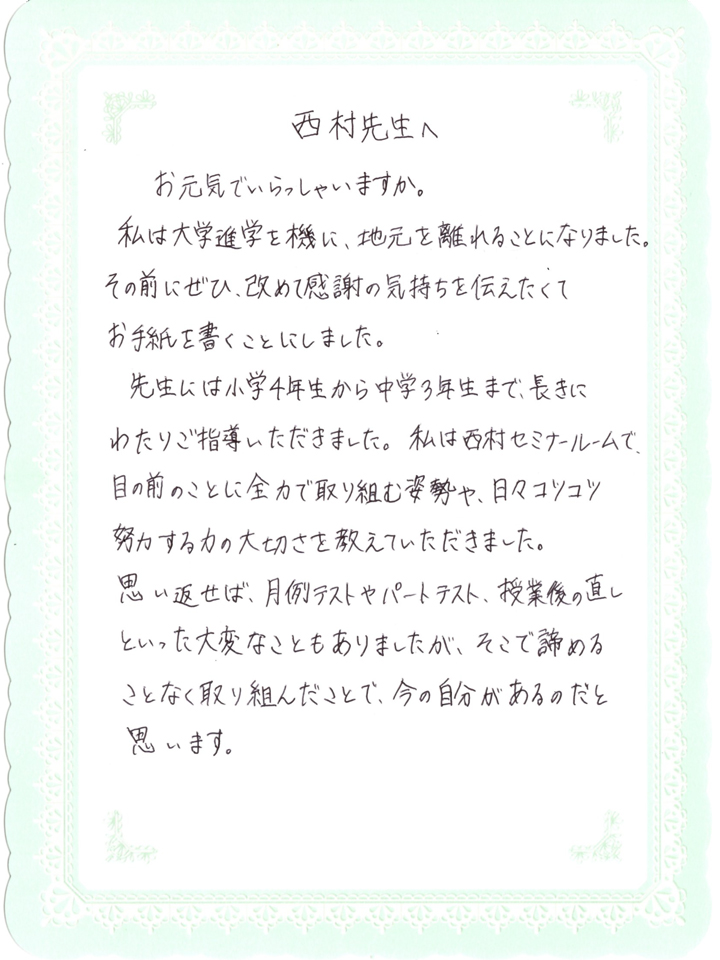 西村先生へ
お元気でいらっしゃいますか。
私は大学進学を機に、地元を離れることになりました。
その前にぜひ、改めて感謝の気持ちを伝えたくて
お手紙を書くことにしました。
先生には小学4年生から中学3年生まで、長きに
わたりご指導いただきました。私は西村セミナールームで、
目の前のことに全力で取り組む姿勢や、日々コツコツ
努力する力の大切さを教えていただきました。
思い返せば、月例テストやパートテスト、授業後の直し
といった大変なこともありましたが、そこで諦める
ことなく取り組んだことで、今の自分があるのだと
思います。